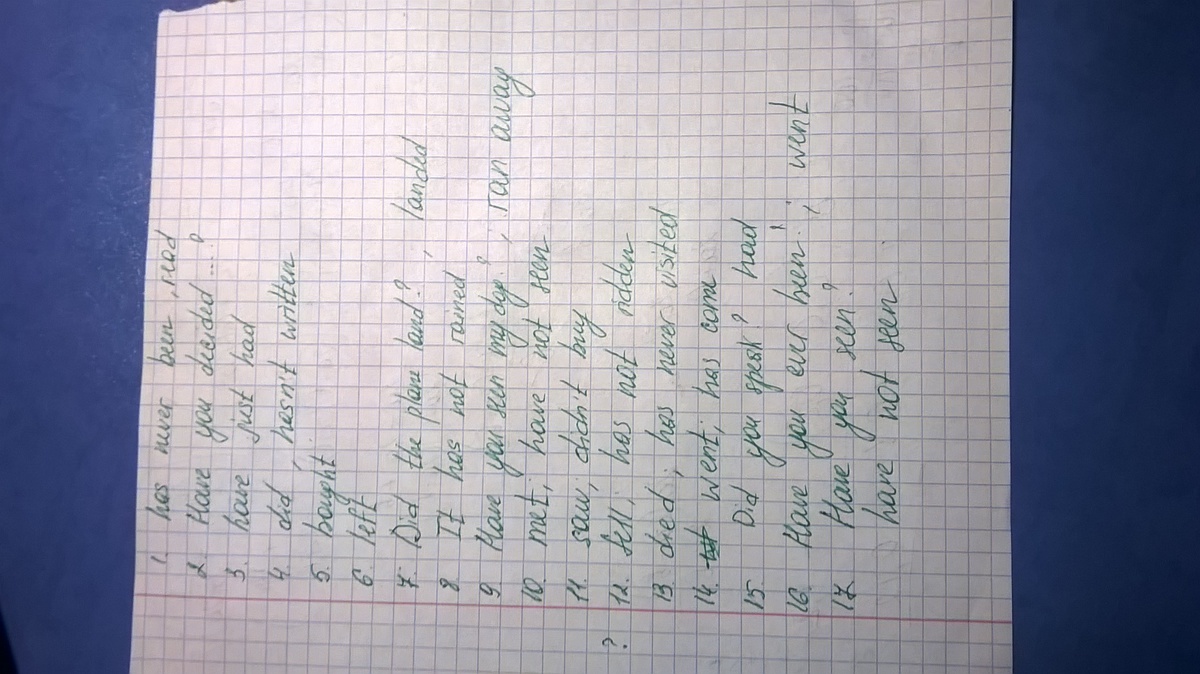 1. has never been, read
2. Have you decided ...?
3. have just had
4. did, hasn't written
5. bought
6. left
7. Did the plane land?, landed
8 It has not rained
9 Have you seen my dog?, ran away
10. met; have not seen
11. saw; didn't buy
? 12. fell; has not ridden
13. died; has never visited
14. went; has come
15. Did you speak? had
16. Have you ever been?; went
17. Have you seen?
have not seen.